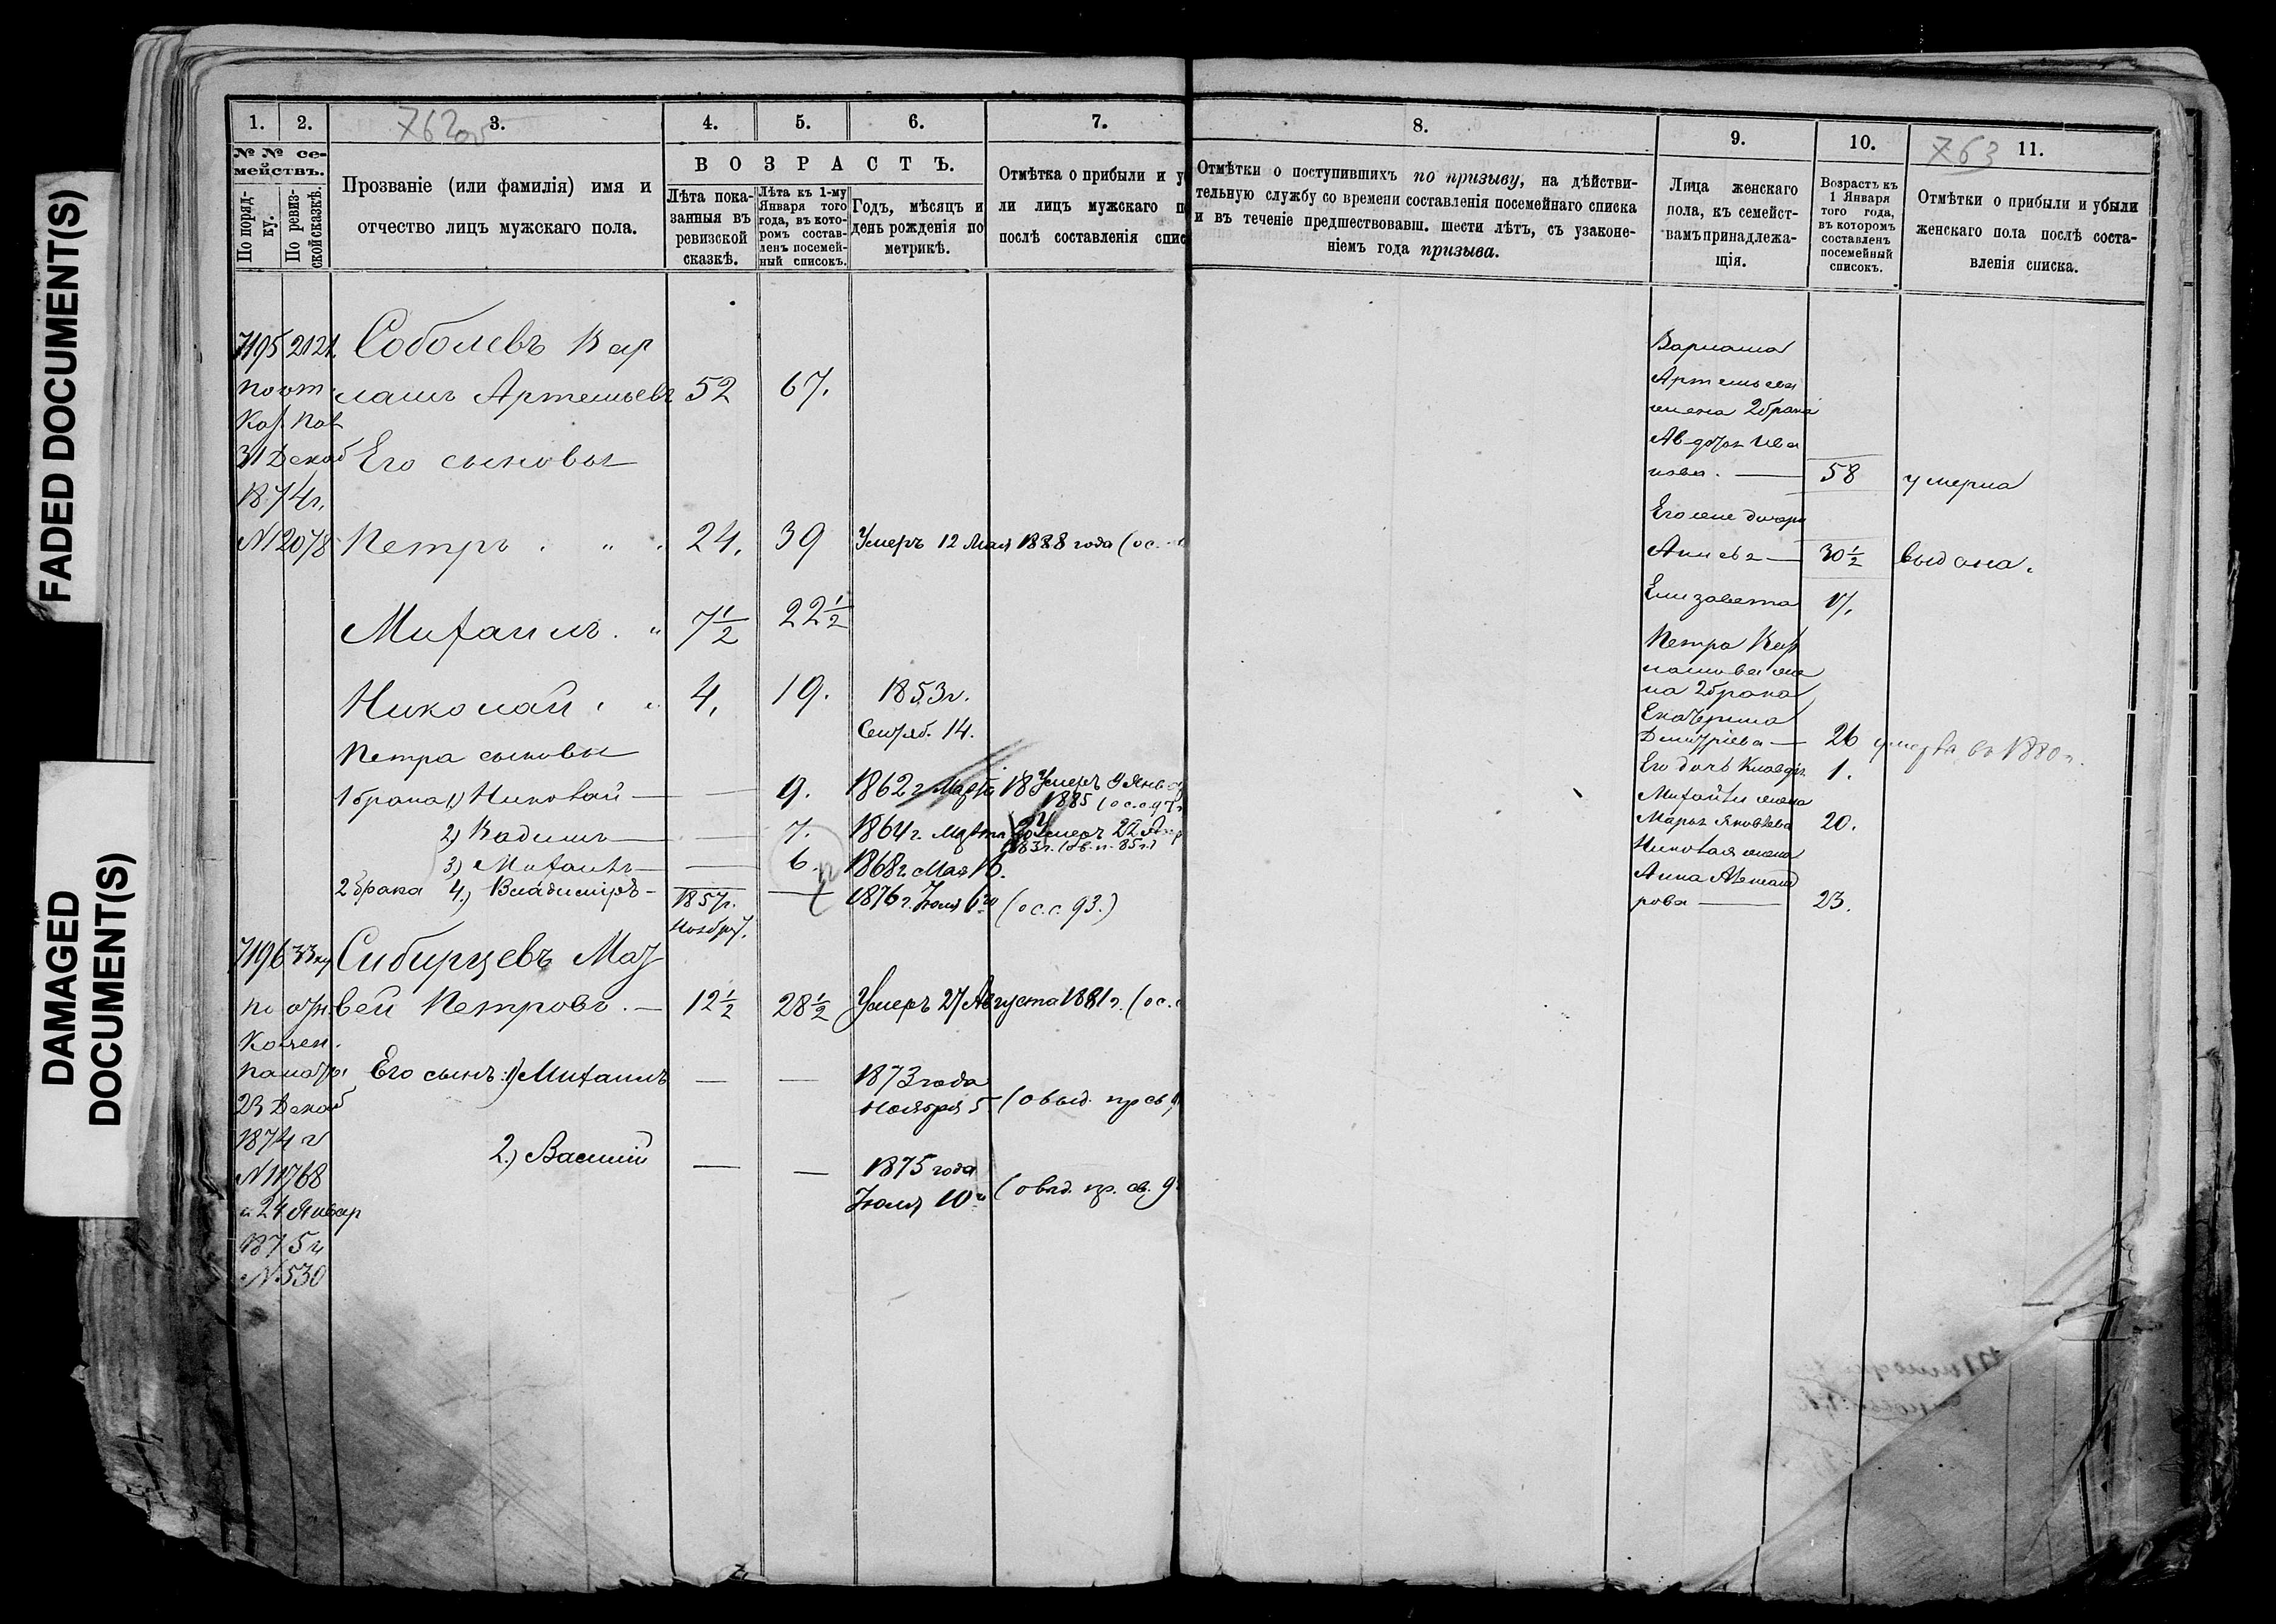 FADED DOCUMENT(S)
DAMAGED
DOCUMENT(S)
762об
1. 2. 3. 4. 5. 6. 7.
№ № се-
мействъ.
По поряд-
ку.
По ревиз-
ской сказкѣ.
Прозваніе (или фамилія) имя и
отчество лицъ мужскаго пола.
ВОЗРАСТЪ.
Лѣта пока-
занныя въ
ревизской
сказкѣ.
Лѣта къ 1-му
Января того
года, въ кото-
ромъ состав-
ленъ посемей-
ный списокъ.
Годъ, мѣсяцъ и
день рожденія по
метрикѣ.
Отмѣтка о прибыли и у
ли лицъ мужскаго п
послѣ составленія спис
7195 2121. Соболевъ Вар
по от лаамъ Артемьевъ 52 67.
31 Декаб Его сыновья
1874г.
N12078 Петръ 24. 39 Умеръ 12 Мая 1888 года (ос.
Михаилъ 7½ 22½
Николай 4. 19. 1853г.
Сентяб. 14.
Петра сыновья
1 брака 1) Николай — — 9. 1862 г Марта 18 Умеръ 9 Янв
1885 (о с.с. 97
2) Вадимъ — — 7. 1864 г. Марта 20 Умеръ 22
3) Михаилъ — — 6. 1868 г. Мая 16.
2 брака 4.) Владиміръ — 1876 г. Іюля 6го (ос.с. 93.)
1857г.
Ноябр 7.
7196 33 Сибирцевъ Мат
по отн. вей Петровъ. — 12½ 28½ Умеръ 27 Августа 1881 г. (ос.
Казен.
Палаты Его сынъ: 1) Михаилъ — — 1873 года
23 Декаб Ноября 5 (о выд. пр св
1874 г
2.) Василій — — 1875 года
N 11768 Іюля 10го (о выд. пр. св. 9
и 24 Январ
1875 г
N 530
763
8. 9. 10. 11.
Отмѣтки о поступившихъ по призыву, на дѣйстви-
тельную службу со времени составленія посемейнаго списка
и въ теченіе предшествовавш. шести лѣтъ, съ узаконе-
ніемъ года призыва.
Лица женскаго
пола, къ семейст-
вамъ принадлежа-
щія.
Возрастъ къ
1 Января
того года,
въ которомъ
составленъ
посемейный
списокъ.
Отмѣтки о прибыли и убыли
женскаго пола послѣ соста-
вленія списка.
Варлаама
Артемьева
жена 2 брака
Авдотья Ива
нова. — 58 умерла
Его же дочери
Анисья — 30½ выдана.
Елизавета 17.
Петра Вар
лаамова же
на 2 брака
Екатерина
Дмитріева — 26 умерла въ 1880 г.
Его дочь Клавдія 1.
Михаила жена
Марья Яковлева 20.
Николая жена
Анна Александ
рова — 23.